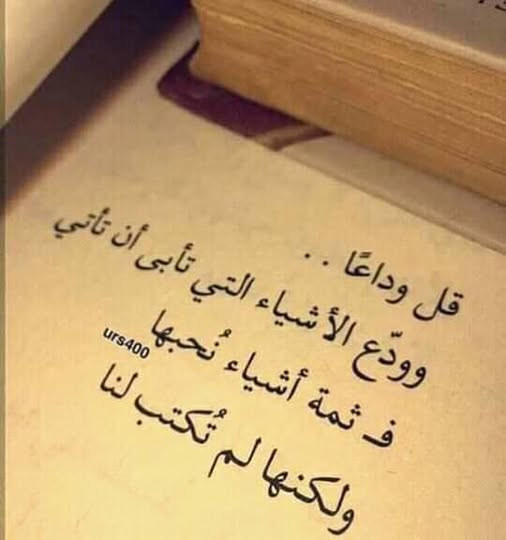 قل وداعًا ..
وودّع الأشياء التي تأبى أن تأتي
فـ ثمة أشياء نُحبها
urs400
ولكنها لم تُكتب لنا